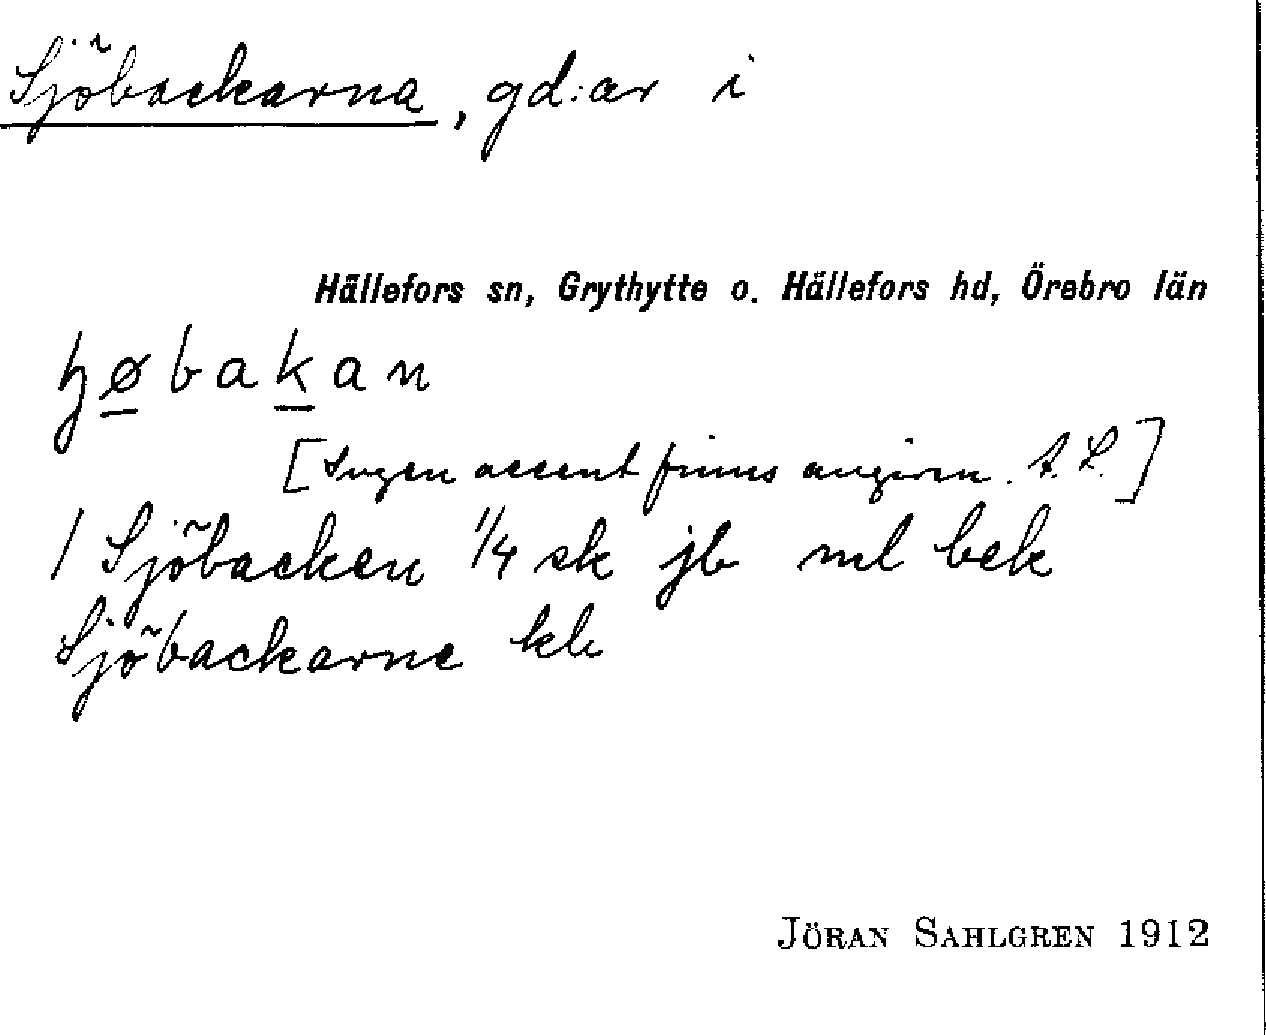 Sjöbackarna, gd:ar i
Hällefors sn, Grythytte o. Hällefors hd, Örebro län
ɧøbakan
[Ingen accent finns angiven. A.L.]
1 Sjöbacken 1/4 sk jb ml bek
Sjöbackarne kb
JÖRAN SAHLGREN 1912